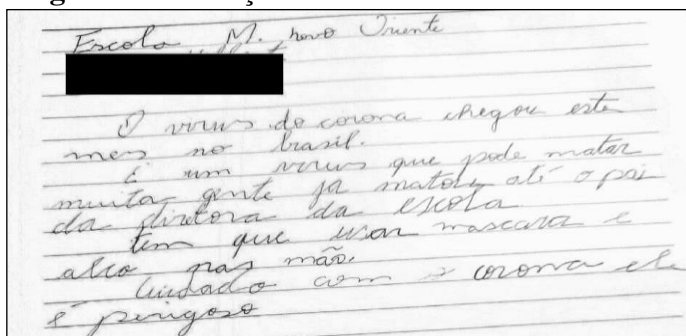 Escola M. novo Oriente
O virus do corona chegou este
mes no brasil.
É um virus que pode matar
muita gente ja matou até o pai
da diretora da escola
tem que usar mascara e
alco nas mãos
Cuidado com o corona ele
é perigoso